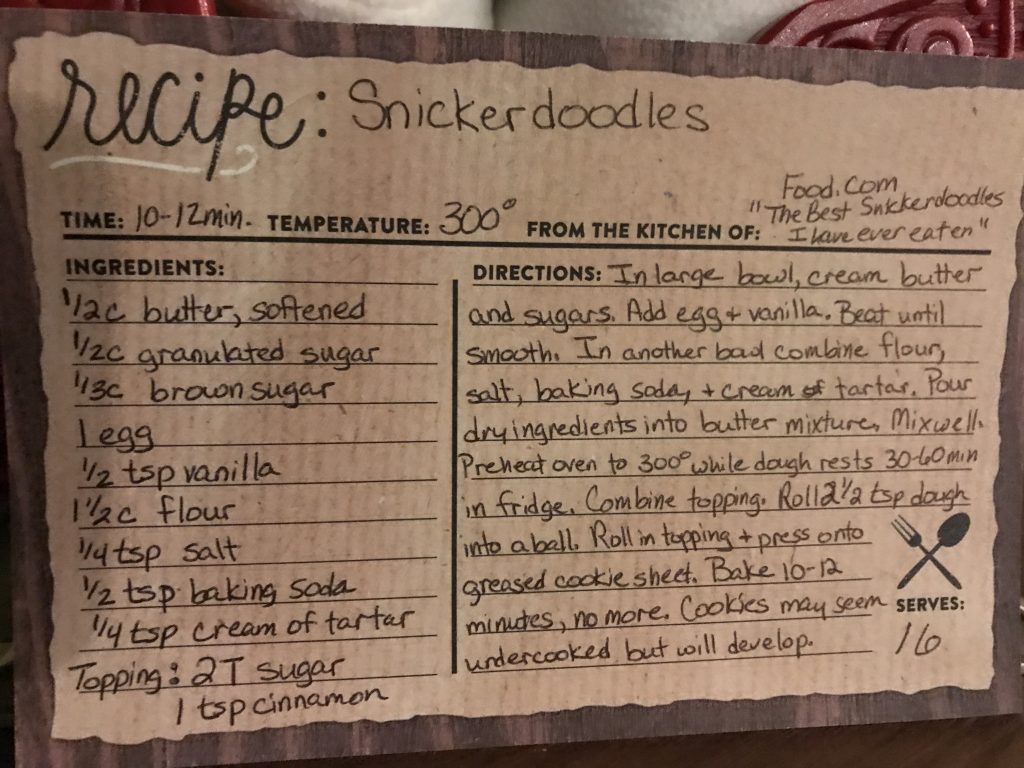 recipe: Snickerdoodles
TIME: 10-12min. TEMPERATURE: 300° FROM THE KITCHEN OF: Food.com
"The Best Snickerdoodles
I have ever eaten"
INGREDIENTS:
1/2c butter, softened
1/2c granulated sugar
1/3c brown sugar
1 egg
1/2 tsp vanilla
1 1/2c flour
1/4 tsp salt
1/2 tsp baking soda
1/4 tsp cream of tartar
Topping: 2T sugar
1 tsp cinnamon
DIRECTIONS: In large bowl, cream butter
and sugars. Add egg + vanilla. Beat until
smooth. In another bowl combine flour,
salt, baking soda, + cream of tartar. Pour
dry ingredients into butter mixture. Mix well.
Preheat oven to 300° while dough rests 30-60min
in fridge. Combine topping. Roll 2 1/2 tsp dough
into a ball. Roll in topping + press onto
greased cookie sheet. Bake 10-12
minutes, no more. Cookies may seem
undercooked but will develop.
SERVES:
16